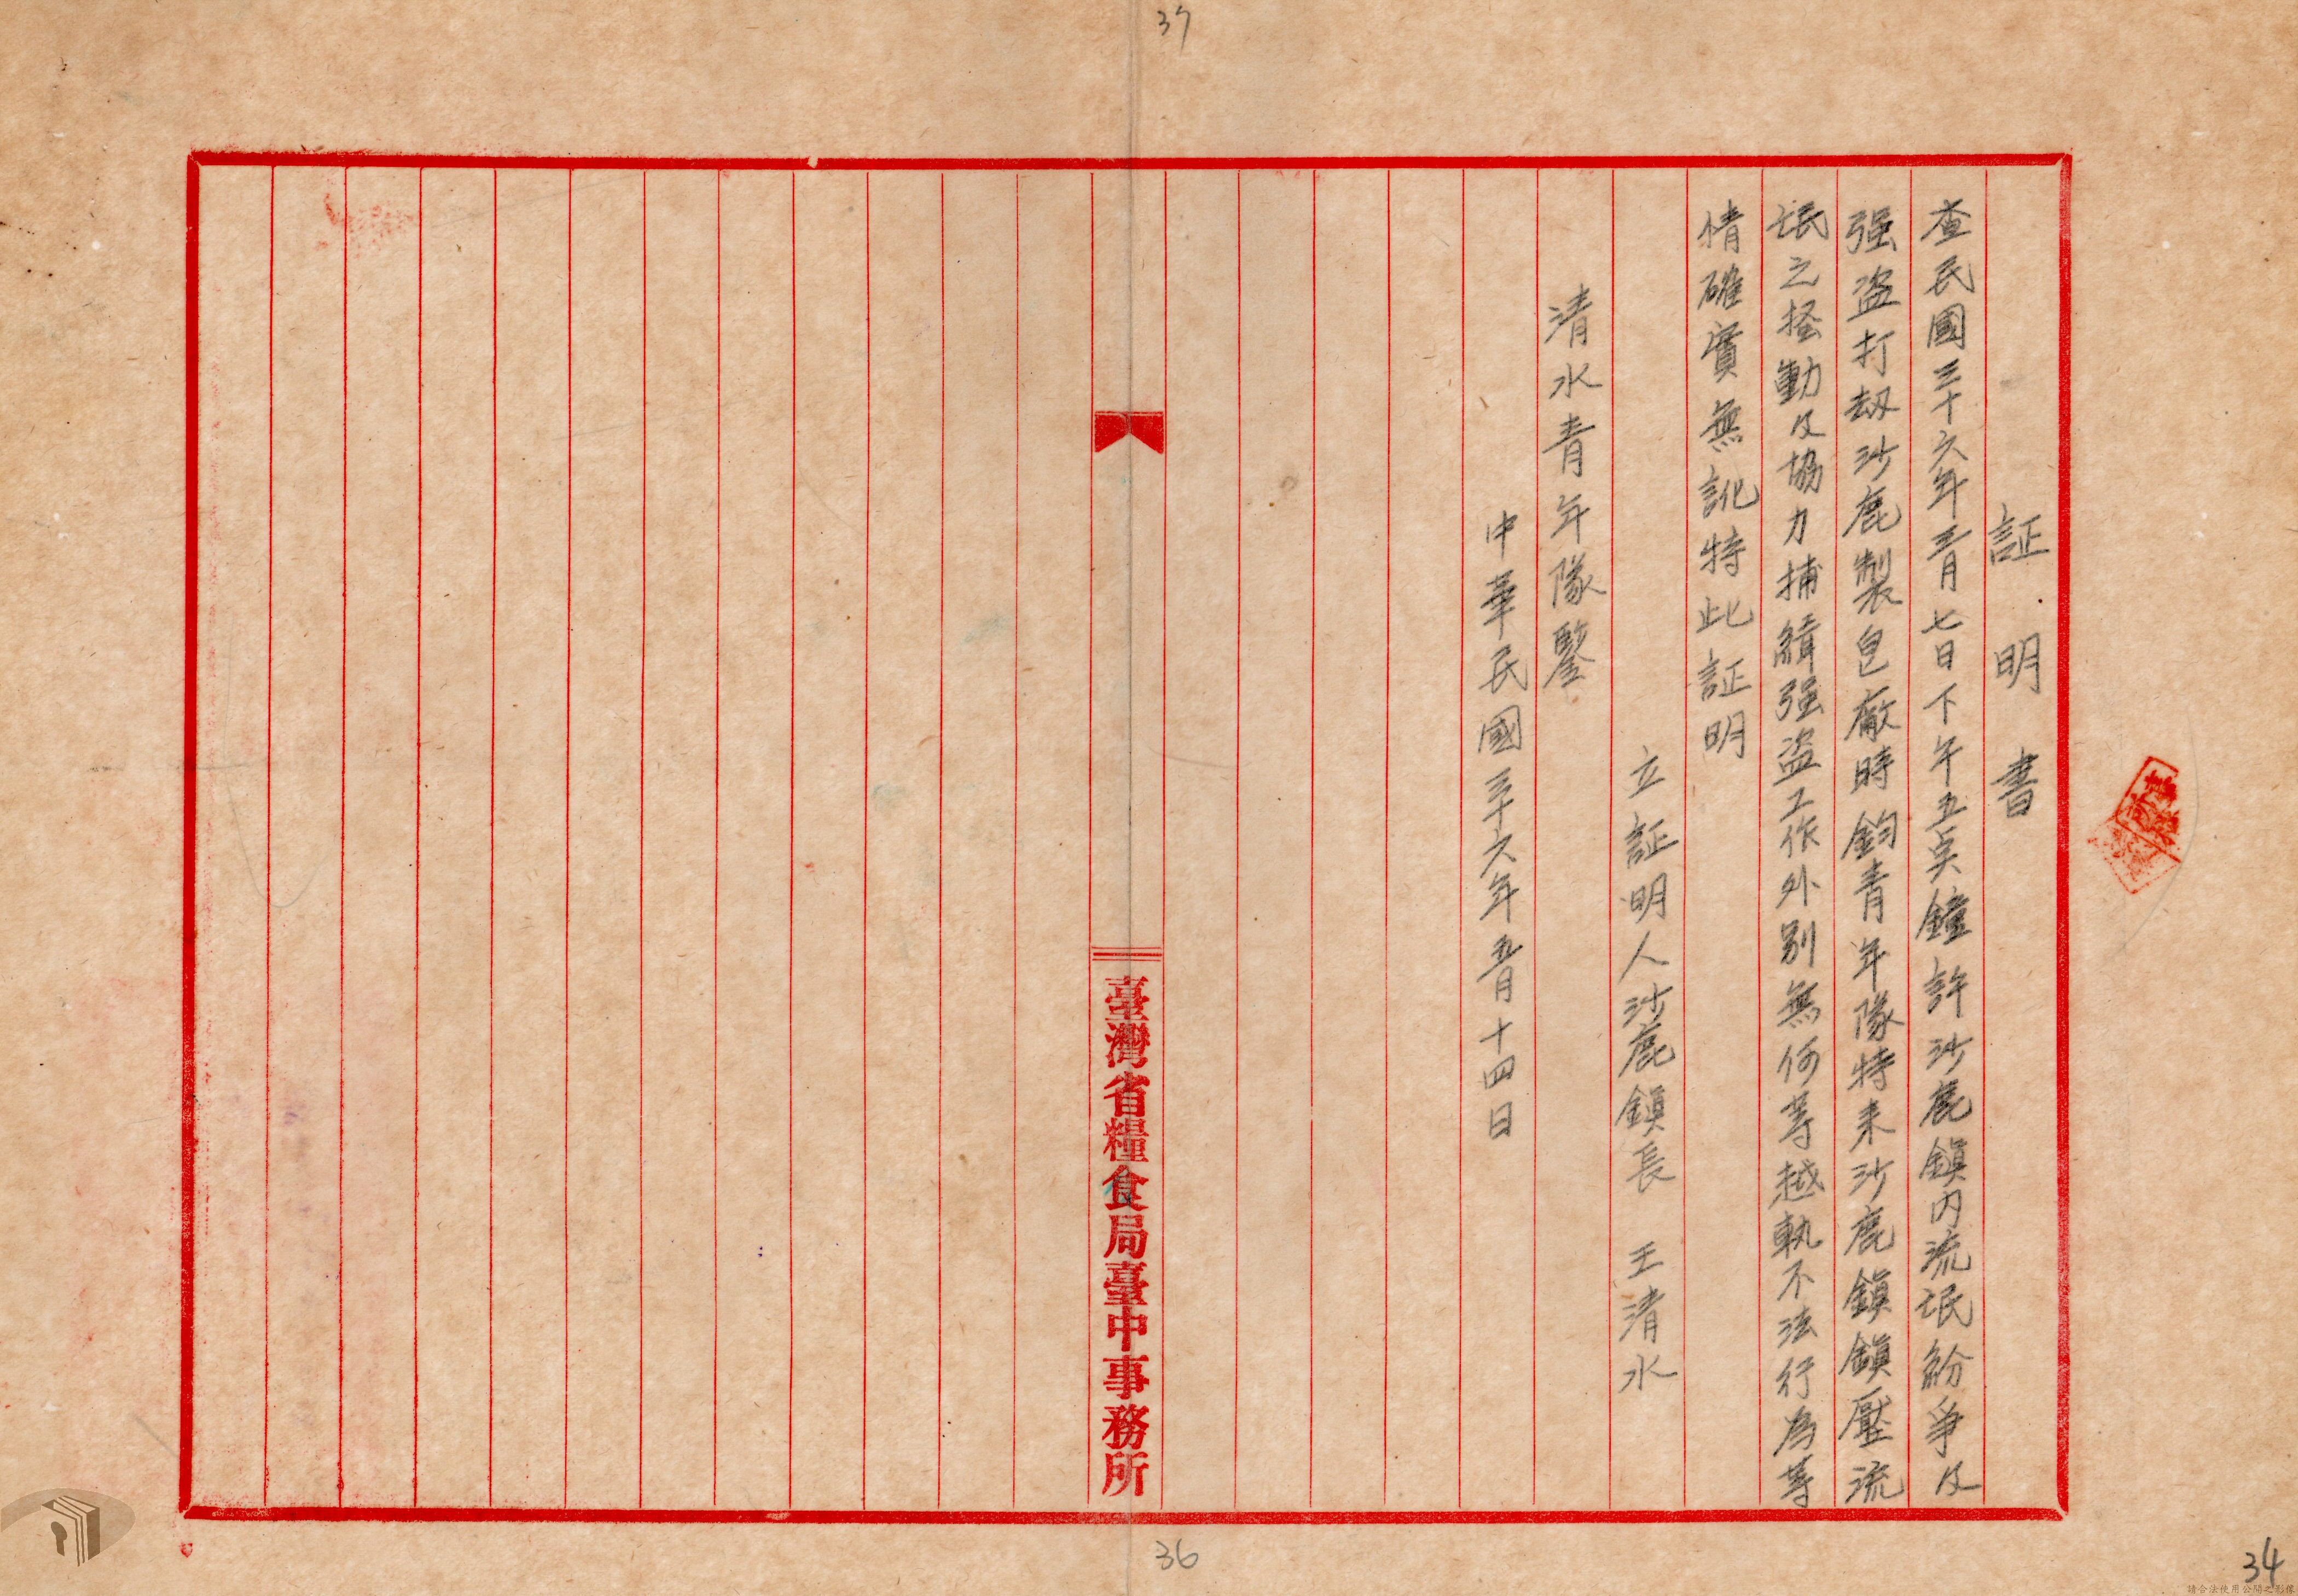 37
証明書
查民國三十六年三月七日下午五点鐘許沙鹿鎮内流氓紛爭及
强盗打刼沙鹿製皂廠時鈞青年隊特来沙鹿鎮鎮壓流
氓之搔動及協力捕緝强盗工作外别無何等越軌不法行為等
情確實無訛特此証明
立証明人沙鹿鎮長 王清水
清水青年隊鑒
中華民國三十六年五月十四日
臺灣省糧食局臺中事務所
36
34
請合法使用公開之影像